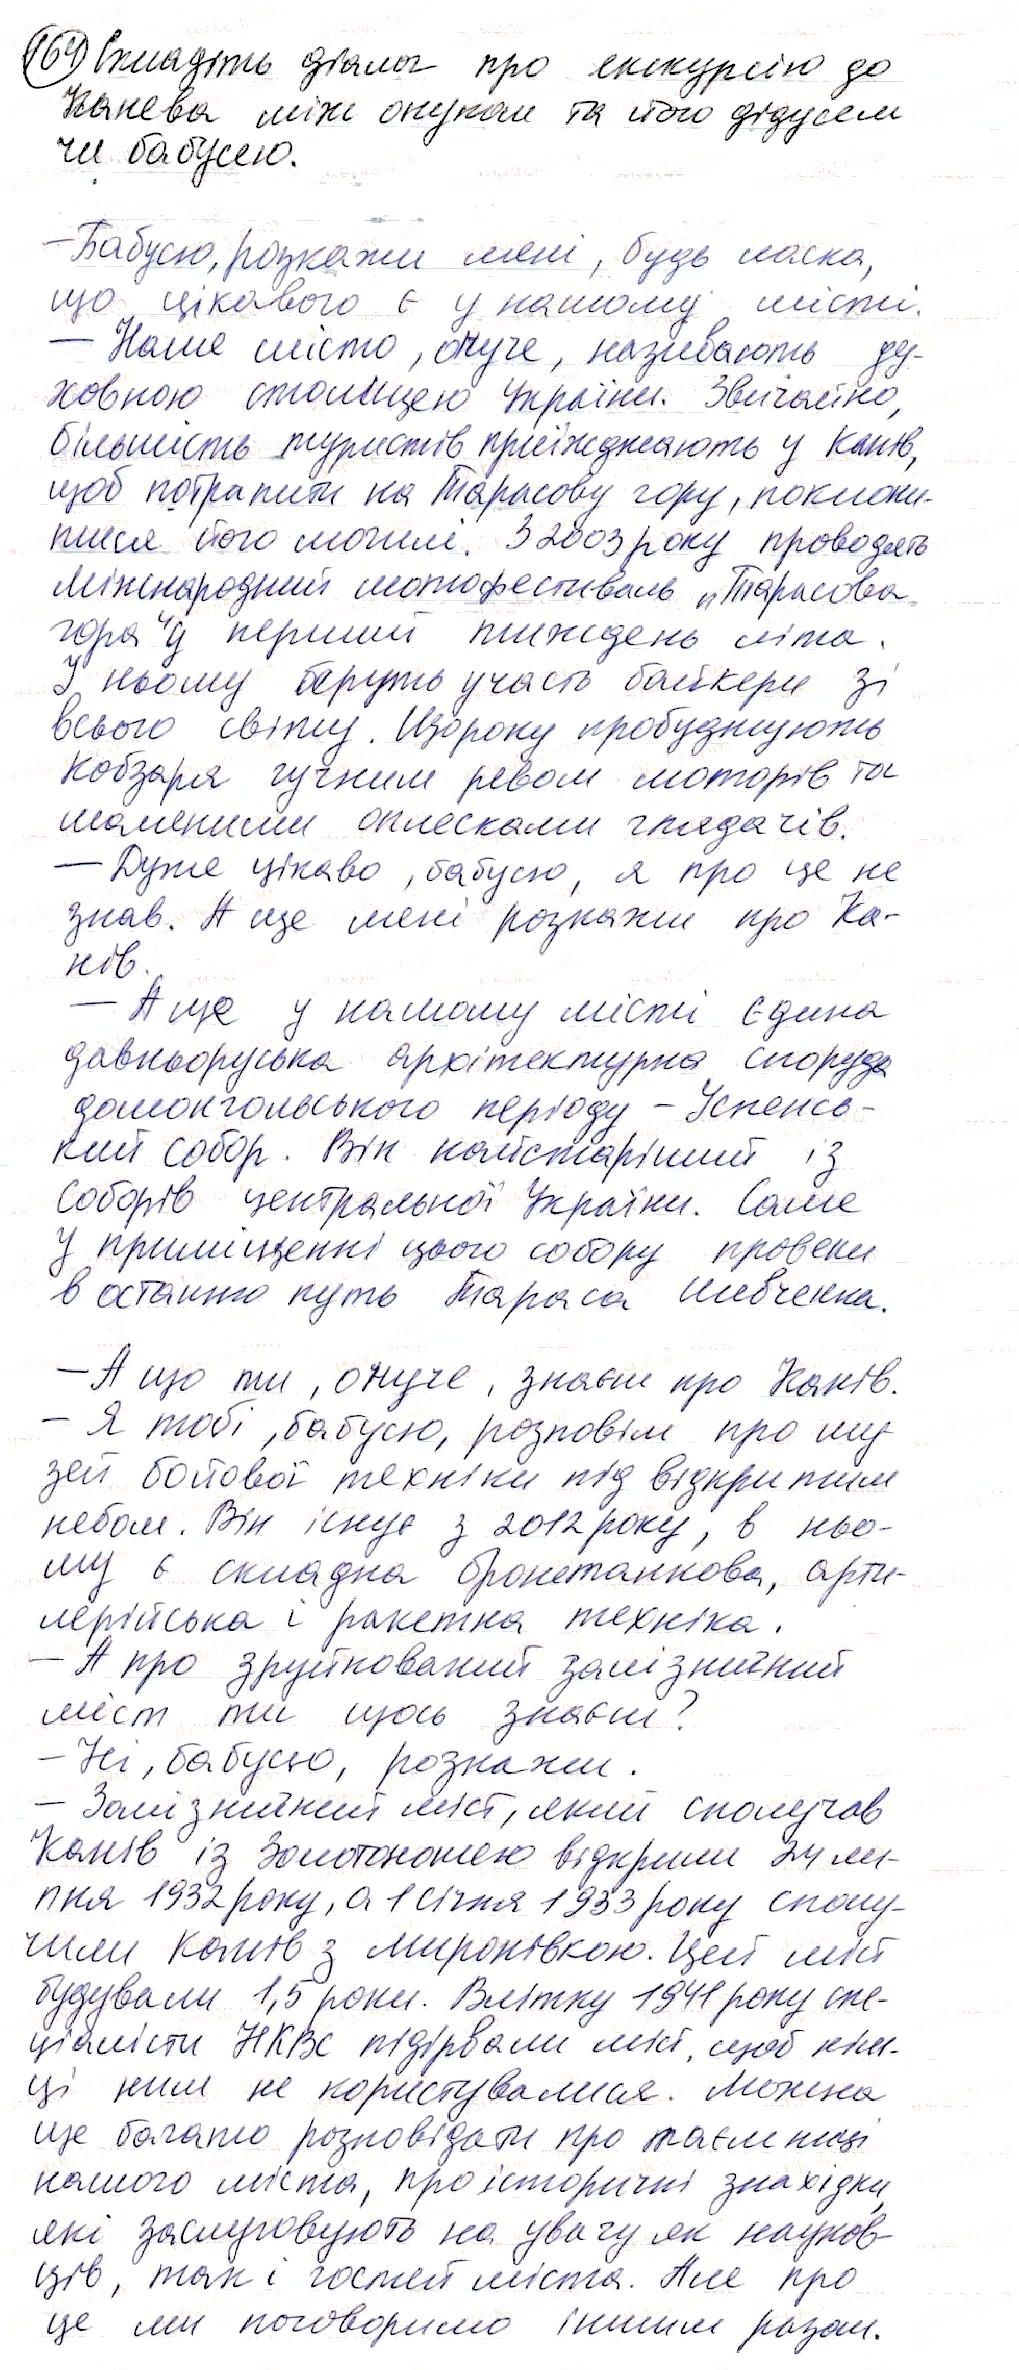 164 Складіть діалог про екскурсію до
Канева між онуком та його дідусем
чи бабусею.
— Бабусю, розкажи мені, будь ласка,
що цікавого є у нашому місті.
— Наше місто, онуче, називають ду-
ховною столицею України. Звичайно,
більшість туристів приїжджають у Канів,
щоб потрапити на Тарасову гору, поклони-
тися його могилі. З 2003 року проводять
міжнародний мотофестиваль „Тарасова
гора" у перший тиждень літа.
У ньому беруть участь байкери зі
всього світу. Щороку пробуджують
Кобзаря гучним ревом моторів та
шаленими оплесками глядачів.
— Дуже цікаво, бабусю, я про це не
знав. А ще мені розкажи про Ка-
нів.
— А ще у нашому місті єдина
давньоруська архітектурна споруда
домонгольського періоду – Успенсь-
кий собор. Він найстаріший із
соборів центральної України. Саме
у приміщенні цього собору провели
в останню путь Тараса Шевченка.
— А що ти, онуче, знаєш про Канів.
– Я тобі, бабусю, розповім про му
зей бойової техніки під відкритим
небом. Він існує з 2012 року, в ньо-
му є складна бронетанкова, арти-
лерійська і ракетна техніка.
– А про зруйнований залізничний
міст ти щось знаєш?
– Ні, бабусю, розкажи.
– Залізничний міст, який сполучав
Канів із Золотоношею відкрили 24 ли-
пня 1932 року, а 1 січня 1933 року сполу-
чили Канів з Миронівкою. Цей міст
будували 1,5 роки. Влітку 1941 року спе-
ціалісти НКВС підірвали міст, щоб нім-
ці ним не користувалися. Можна
ще багато розповідати про таємниці
нашого міста, про історичні знахідки,
які заслуговують на увагу як науков-
ців, так і гостей міста. Але про
це ми поговоримо іншим разом.